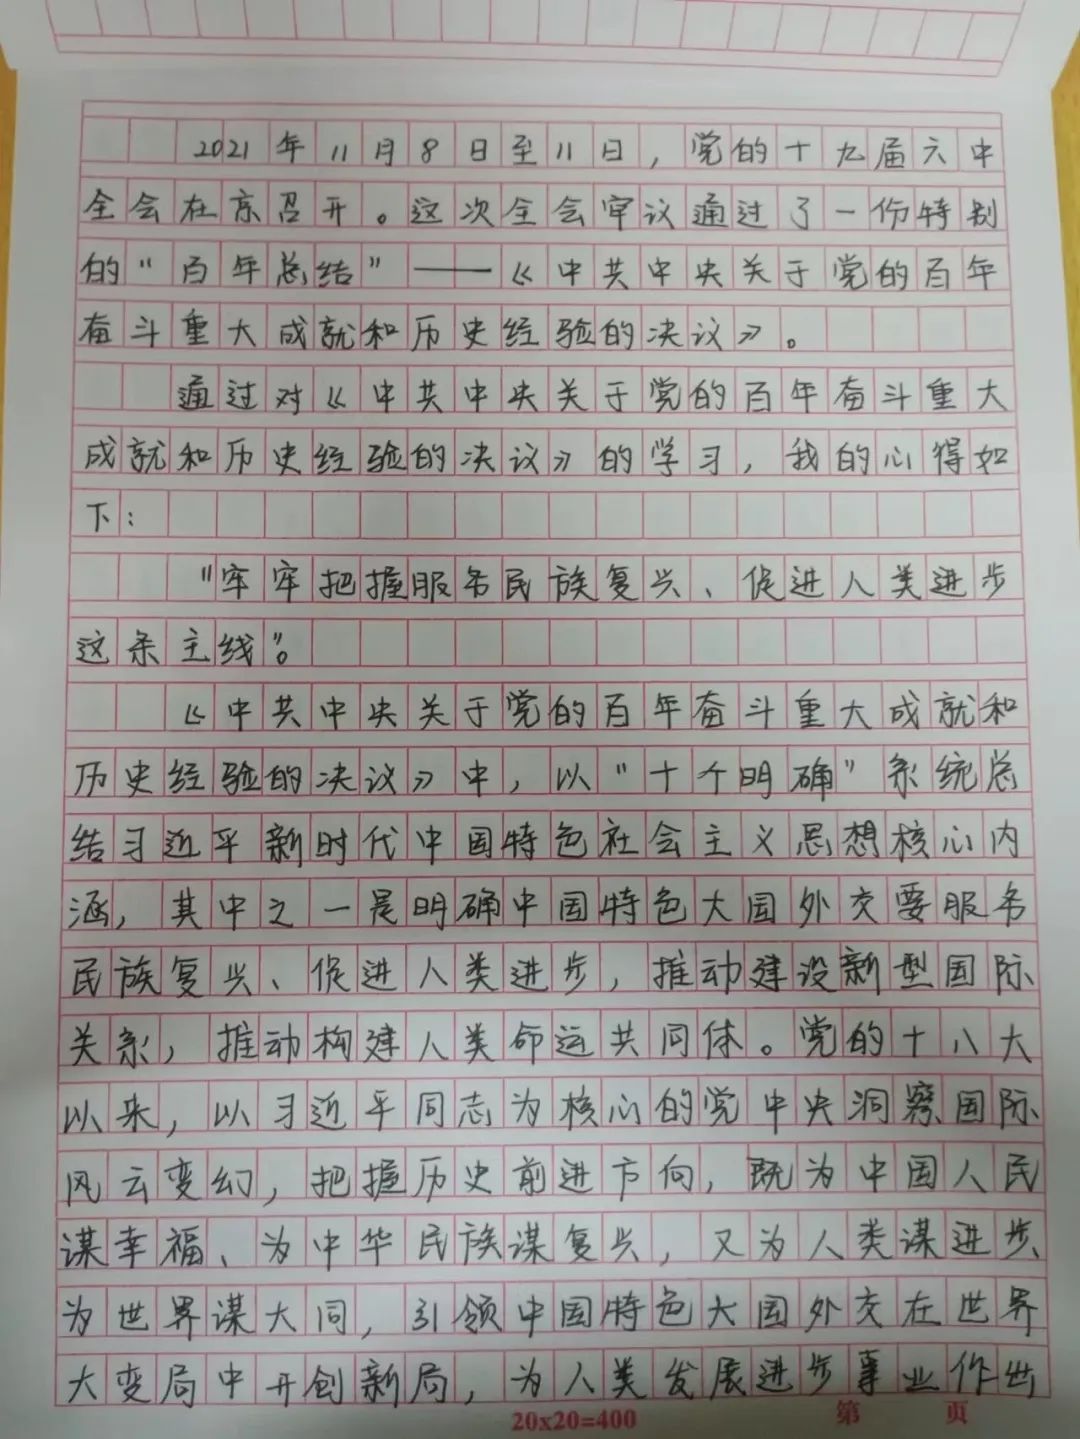 2021年11月8日至11日，党的十九届六中
全会在京召开。这次全会审议通过了一份特别
的“百年总结”——《中共中央关于党的百年
奋斗重大成就和历史经验的决议》。
通过对《中共中央关于党的百年奋斗重大
成就和历史经验的决议》的学习，我的心得如
下：
“牢牢把握服务民族复兴、促进人类进步
这条主线”。
《中共中央关于党的百年奋斗重大成就和
历史经验的决议》中，以“十个明确”系统总
结习近平新时代中国特色社会主义思想核心内
涵，其中之一是明确中国特色大国外交要服务
民族复兴、促进人类进步，推动建设新型国际
关系，推动构建人类命运共同体。党的十八大
以来，以习近平同志为核心的党中央洞察国际
风云变幻，把握历史前进方向，既为中国人民
谋幸福、为中华民族谋复兴，又为人类谋进步、
为世界谋大同，引领中国特色大国外交在世界
大变局中开创新局，为人类发展进步事业作出
20x20=400 第 页